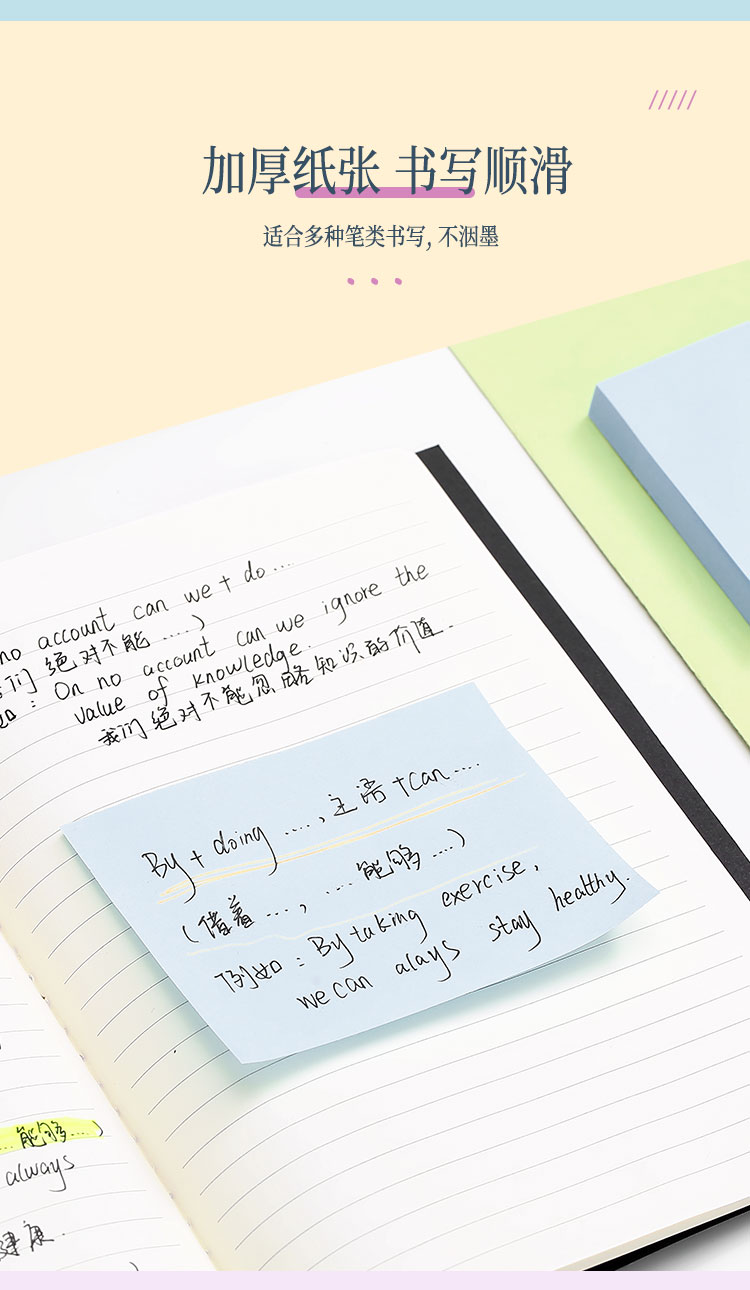 加厚纸张 书写顺滑
适合多种笔类书写, 不洇墨
no account can we + do ...
们 绝对不能 ....)
: On no account can we ignore the
value of knowledge.
我们绝对不能忽略知识的价值.
By + doing ...., 主语 + can ....
(借着 ...., .... 能够 ....)
例如: By taking exercise,
we can alays stay healthy.
... 能够 ....)
always
健康.
)